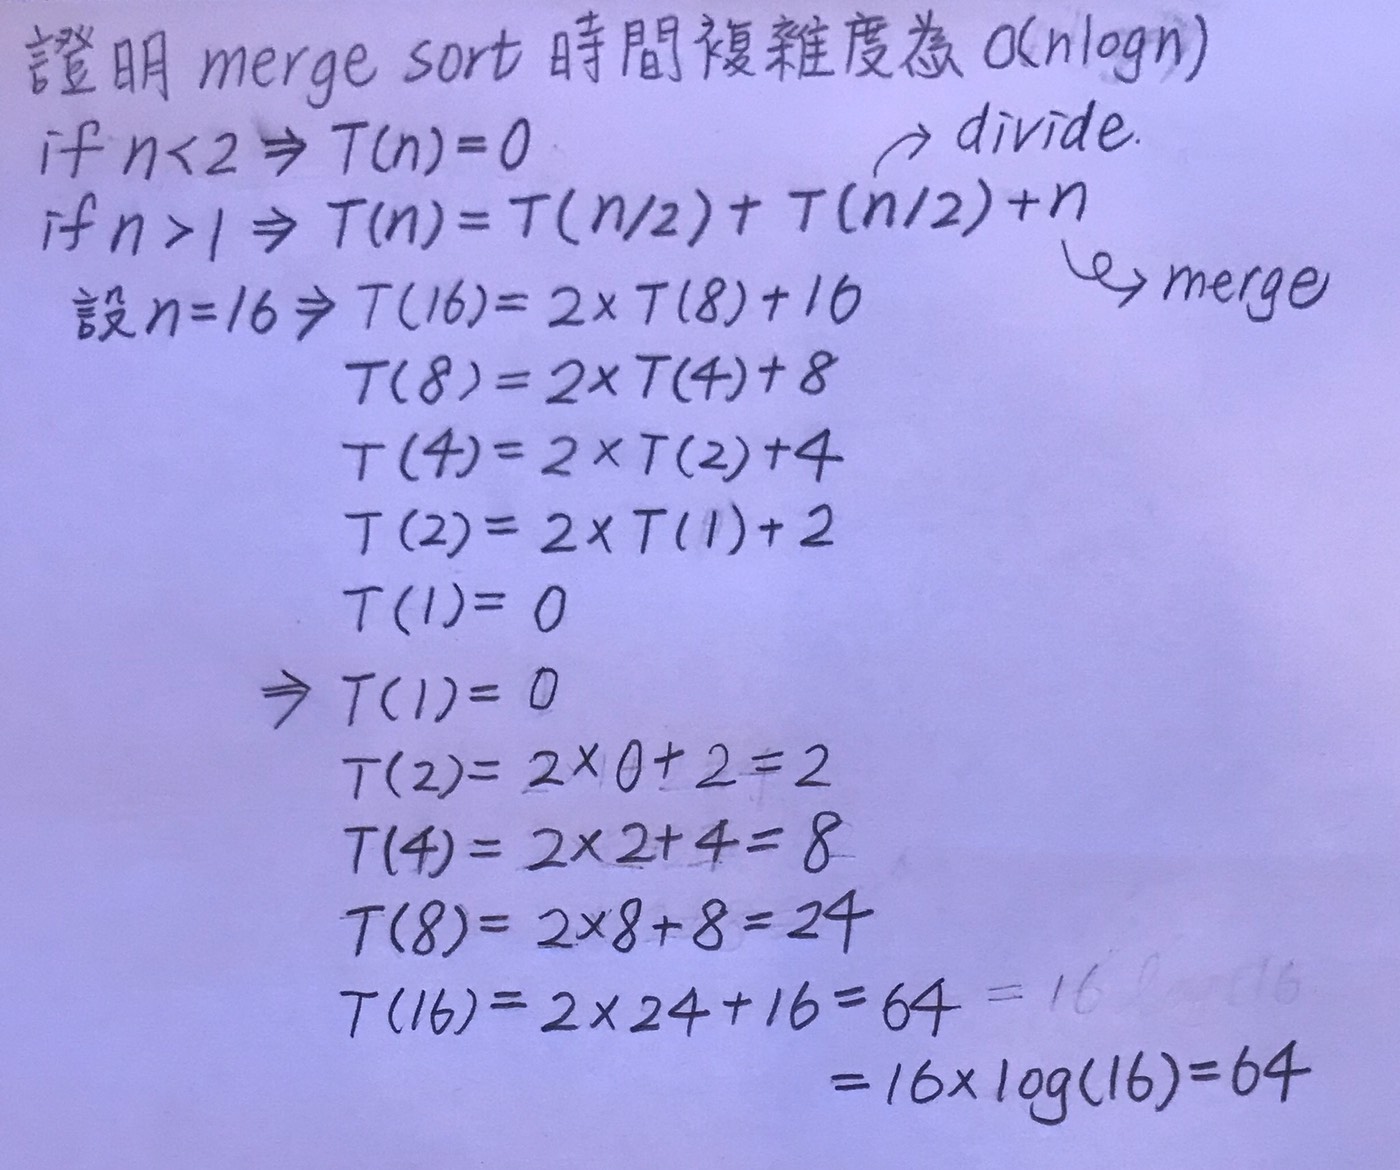 證明 merge sort 時間複雜度為 O(nlogn)
if n<2 ⇒ T(n)=0
→ divide.
if n>1 ⇒ T(n)=T(n/2)+T(n/2)+n
→ merge
設 n=16 ⇒ T(16)=2×T(8)+16
T(8)=2×T(4)+8
T(4)=2×T(2)+4
T(2)=2×T(1)+2
T(1)=0
⇒ T(1)=0
T(2)=2×0+2=2
T(4)=2×2+4=8
T(8)=2×8+8=24
T(16)=2×24+16=64 = 16
=16×log(16)=64